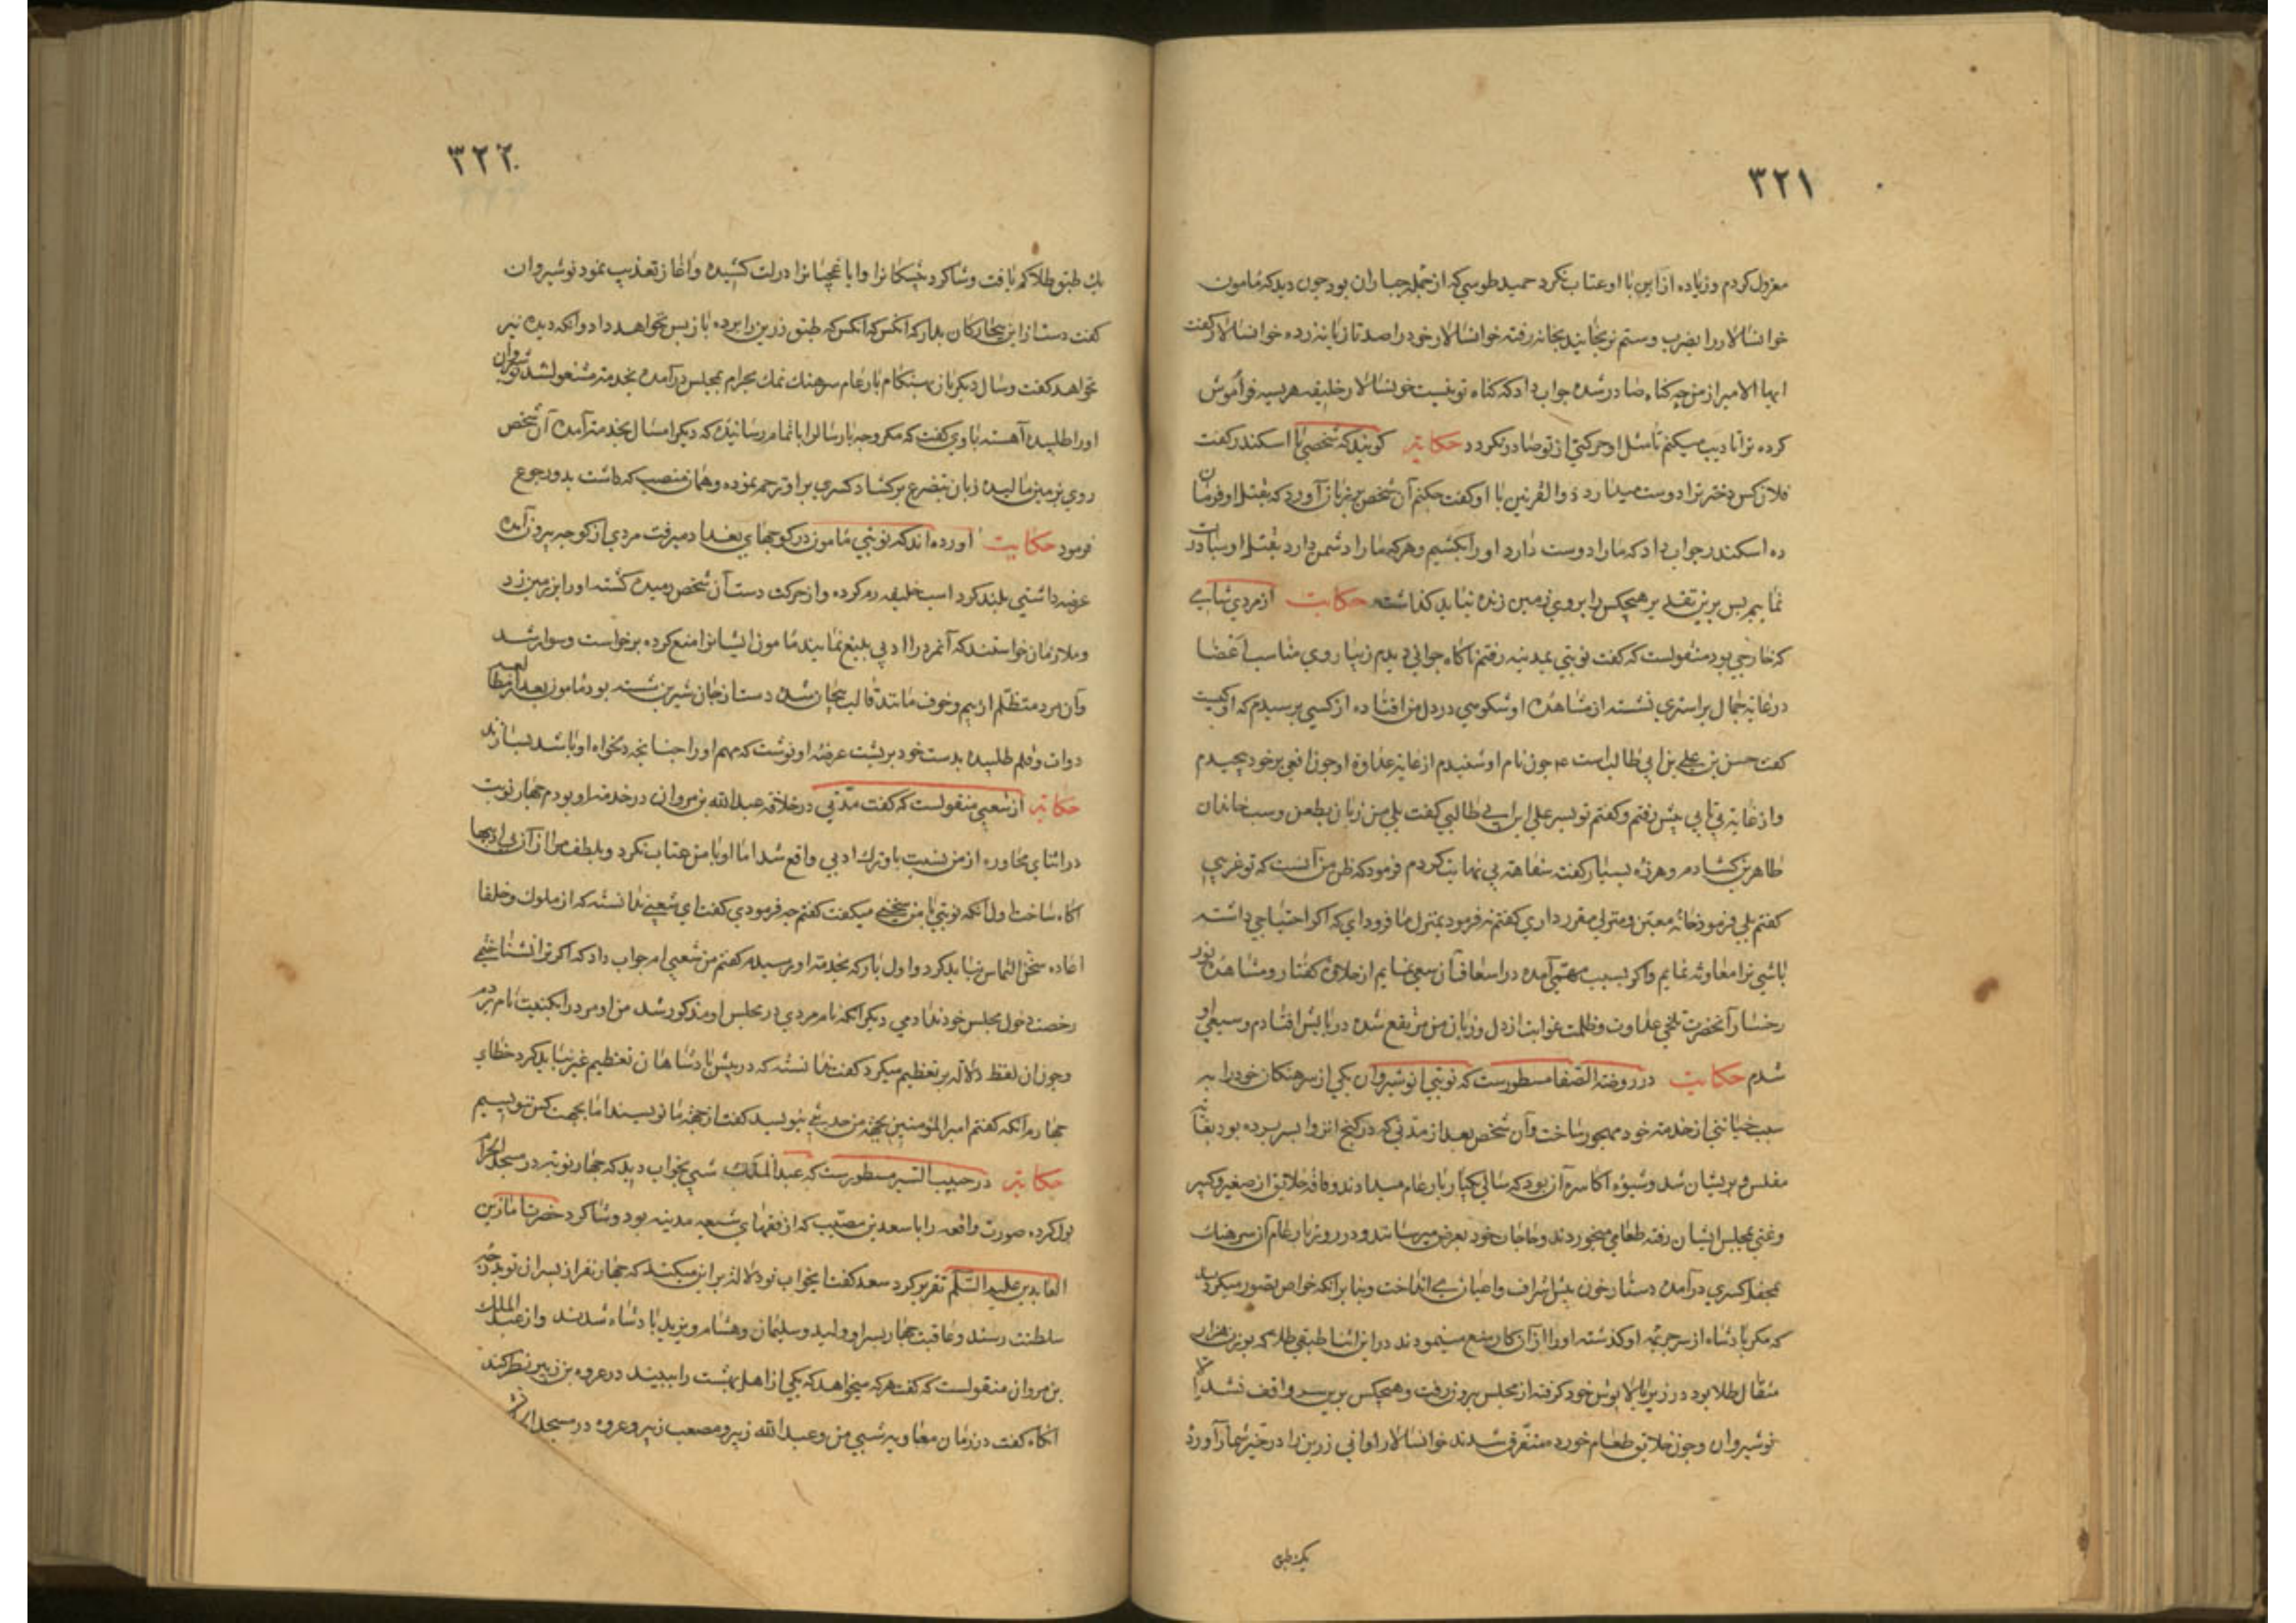 ۳۲۱
معزول کردم وزیاده ازاین با او عتاب نکرد حمید طوسی که از جمله جباران بود چون دید که مامون
خوانسالار را بضرب وستم نرنجانید بخانه رفته خوانسالار خود را صد تازیانه زده خوانسالار گفت
ایها الامیر از من چه کناه صادر شده جواب داد که کناه تو نیست خونسالار خلیفه هریسه فراموش
کرده ترا تادیب میکنم تا مثل او حرکتی از تو صادر نکردد حکایة کویند که شخصی با اسکندر کفت
فلان کس دختر ترا دوست میدارد ذوالقرنین با او کفت چکنم آن شخص بر زبان آورد که بقتل او فرمان
ده اسکندر جواب داد که ما را دوست دارد او را بکشیم وهرکه ما را دشمن دارد بقتل او مبادرت
نماییم پس برین تقدیر هیچکس را بر روی زمین زنده نباید کذاشت حکایت از مردی شامی
که خارجی بود منقولست که کفت نوبتی بمدینه رفتم ناکاه جوانی دیدم زیبا روی متناسب اعضا
در غایة جمال بر استری نشسته از مشاهدۀ او شکوهی در دل من افتاده از کسی پرسیدم که او کیست
کفت حسن بن علی بن ابی طالب است ۴ چون نام او شنیدم از غایة عداوة او چون افعی بر خود پیچیدم
واز غایة بی تابی پیش رفتم وکفتم تو پسر علی ابن ابی طالبی کفت بلی من زبان بطعن وسب خاندان
طاهرین کشادم وهرزه بسیار کفته سفاهة بی نهایت کردم فرمود که ظن من آنست که تو غریبی
کفتم بلی فرمود خانۀ معین ومنزلی مقرر داری کفتم نه فرمود بمنزل ما فرود ای که اکر احتیاجی داشته
باشی ترا معاونه نمایم واکر بسبب مهمی آمده در اسعاف آن سعی نمایم از حلاوة کفتار ومشاهدۀ نور
رخسار آنحضرت تلخی عداوت وظلمت غوایت از دل وزبان من مرتفع شده در پایش افتادم وشیعۀ او
شدم حکایت در روضة الصفا مسطورست که نوبتی انوشیروان یکی از سرهنکان خود را به
سبب خیانتی از خدمة خود مهجور ساخت وآن شخص بعد از مدتی که در کنج انزوا بسر برده بود بغایة
مفلس وپریشان شد وشیوۀ اکاسره آن بود که سالی یکبار بار عام میدادند وکافه خلایق از صغیر وکبیر
وغنی بمجلس ایشان رفته طعامی میخوردند وحاجات خود بعرض میرسانند ودر روز بار عام آن سرهنک
بمحفل کسری درآمده دستار خوان پیش اشراف واعیان می انداخت وبنابر انکه خواص تصور میکردند
که مکر پادشاه از سر جریمۀ او کذشته او را از آن کار منع نمینمودند در این اثنا طبقی طلا که بوزن هزار
مثقال طلا بود در زیر بالا پوش خود کرفته از مجلس بیرون رفت وهیچکس برین سر واقف نشد الا
نوشیروان وچون خلایق طعام خورده متفرق شدند خوانسالار اوانی زرین را در حیز شمار آورد
یک طبق
۳۲۲
یک طبق طلا کم یافت وشاکرد چیکانرا وباغچیانرا درلت کشیده وآغاز تعذیب نمود نوشیروان
کفت دست از این بیچارکان بدار که انکس که طبق زرین را برده باز پس نخواهد داد وانکه دیده نیز
نخواهد کفت وسال دیکر بازن بهنکام بار عام سرهنک نمک بحرام بمجلس درآمده بخدمة مشغول شد نوشیروان
اورا طلبیده آهسته با وی کفت که مکر وجه پارسال را با تمام رسانیدی که دیکر امسال بخدمة آمدی آن شخص
روی بر زمین مالیده زبان بتضرع برکشاد کسری بر او ترحم نموده وهمان منصب که داشت بدو رجوع
فرمود حکایت آورده اند که نوبتی مامون در کوچهای بغداد میرفت مردی از کوچه بیرون آمده
عرضه داشتی بلند کرد اسب خلیفه رم کرده واز حرکت دست آن شخص رمیده کشته او را بر زمین زد
وملازمان خواستند که آنمرد را ادبی بلیغ نمایند مامون ایشانرا منع کرده برخواست وسوار شد
وآن مرد متظلم از بیم وخوف مانند قالب بیجان شده دست از جان شیرین شسته بود مامون بعد از
دوات وقلم طلبیده بدست خود بر پشت عرضۀ او نوشت که مهم او را چنانچه دلخواه او باشد بسازند
حکایة از شعبی منقولست که کفت مدتی در خلافة عبدالله بن مروان در خدمة او بودم چهار نوبت
در اثنای محاوره از من نسبت باو ترک ادبی واقع شد اما او با من عتاب نکرد وبلطف مرا از آن بی ادبیها
آکاه ساخت اول آنکه نوبتی با من سخنی میکفت کفتم چه فرمودی کفت ای شعبی ندانستۀ که از ملوک وخلفا
اعاده سخن التماس نباید کرد واول بار که بخدمة او رسیدم کفتم من شعبی ام جواب داد که اکر ترا نشناختمی
رخصت دخول مجلس خود ندادمی دیکر انکه نام مردی در مجلس او مذکور شد من او مرد را بکنیت نام بردم
وچون آن لفظ دلالة بر تعظیم میکرد کفت ندانستۀ که در پیش پادشاهان تعظیم غیر نباید کرد خطای
چهارم آنکه کفتم امیر المؤمنین بجهة من حدیثی بنویسد کفت از جهة ما نویسند اما بجهت کس ننویسیم
حکایة در حبیب السیر مسطورست که عبد الملک شبی بخواب دید که چهار نوبة در مسجد الحرام
بول کرده صورت واقعه را با سعد بن مصیب که از فقهای شیعه مدینه بود وشاکرد حضرت امام زین
العابدین علیه السلم تقریر کرد سعد کفت این خواب تو دلالة بر این میکند که چهار نفر از پسران تو بدرجۀ
سلطنت رسند وعاقبت چهار پسر او ولید وسلیمان وهشام ویزید پادشاه شدند واز عبد الملک
بن مروان منقولست که کفت هرکه میخواهد که یکی از اهل بهشت را ببیند در عروه بن زبیر نظر کند
آنکاه کفت در زمان معاویه شبی من وعبدالله زبیر ومصعب زبیر وعروه در مسجد الحرام